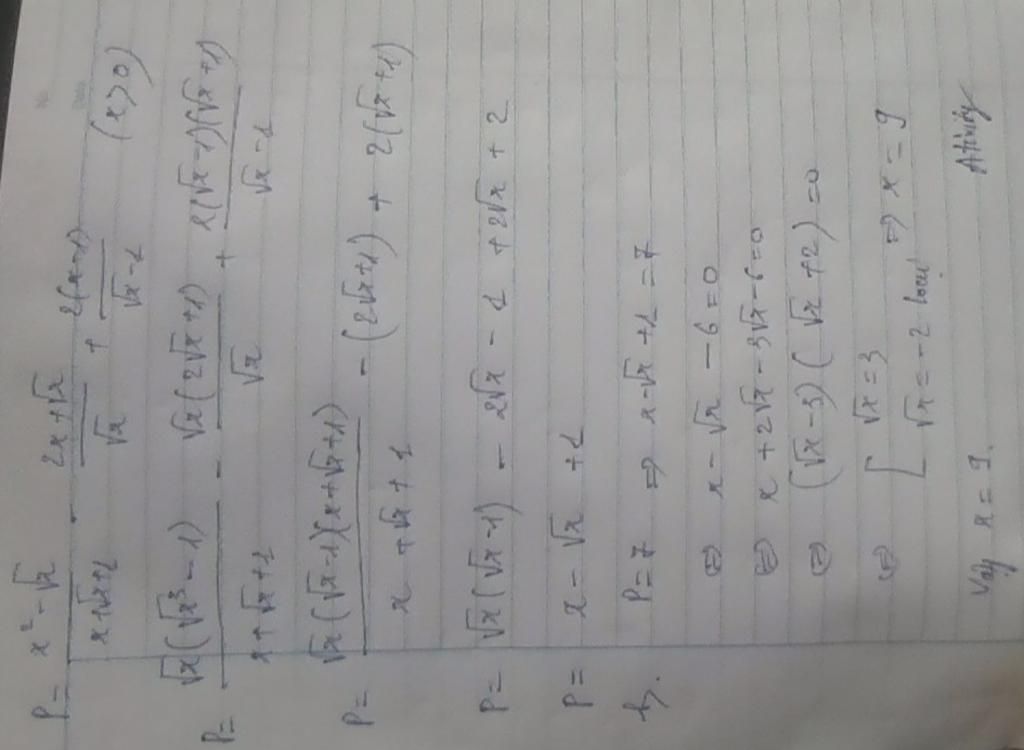 P = (x² - √x)/(x+√x+1) - (2x+√x)/√x + 2(x-1)/(√x-1) (x>0)
P = √x(√x³ - 1)/(x+√x+1) - √x(2√x+1)/√x + 2(√x-1)(√x+1)/(√x-1)
P = √x(√x-1)(x+√x+1)/(x+√x+1) - (2√x+1) + 2(√x+1)
P = √x(√x-1) - 2√x - 1 + 2√x + 2
P = x - √x + 1
b. P=7 => x-√x+1=7
<=> x-√x-6=0
<=> x+2√x-3√x-6=0
<=> (√x-3)(√x+2)=0
<=> [ √x=3 => x=9
√x=-2 loại
Vậy x=9.